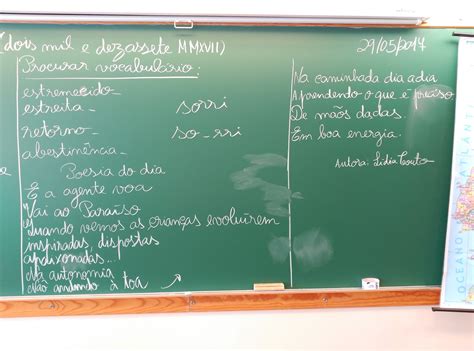 (dois mil e dezassete MMXVII)
29/05/2017
Procurar vocabulário:
estremecido
estreita
sorri
retorno
so-rri
abstinência
Poesia do dia
E a agente voa
Vai ao Paraíso
Quando vemos as crianças evoluírem
inspiradas, dispostas
apaixonadas...
Na autonomia
Não andando à toa
Na caminhada dia a dia
Aprendendo o que é preciso
De mãos dadas.
Em boa energia.
Autora: Lídia
OCEANO
ATLÂNTI